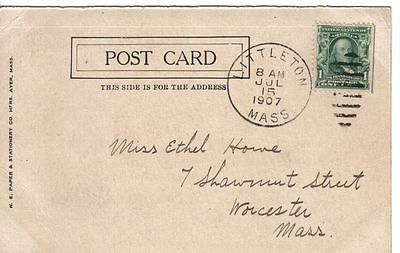 POST CARD
THIS SIDE IS FOR THE ADDRESS
LITTLETON
8 AM
JUL
15
1907
MASS.
1
Miss Ethel Howe
7 Shawmut Street
Worcester
Mass.
N. E. PAPER & STATIONERY CO. MFRS. AYER, MASS.